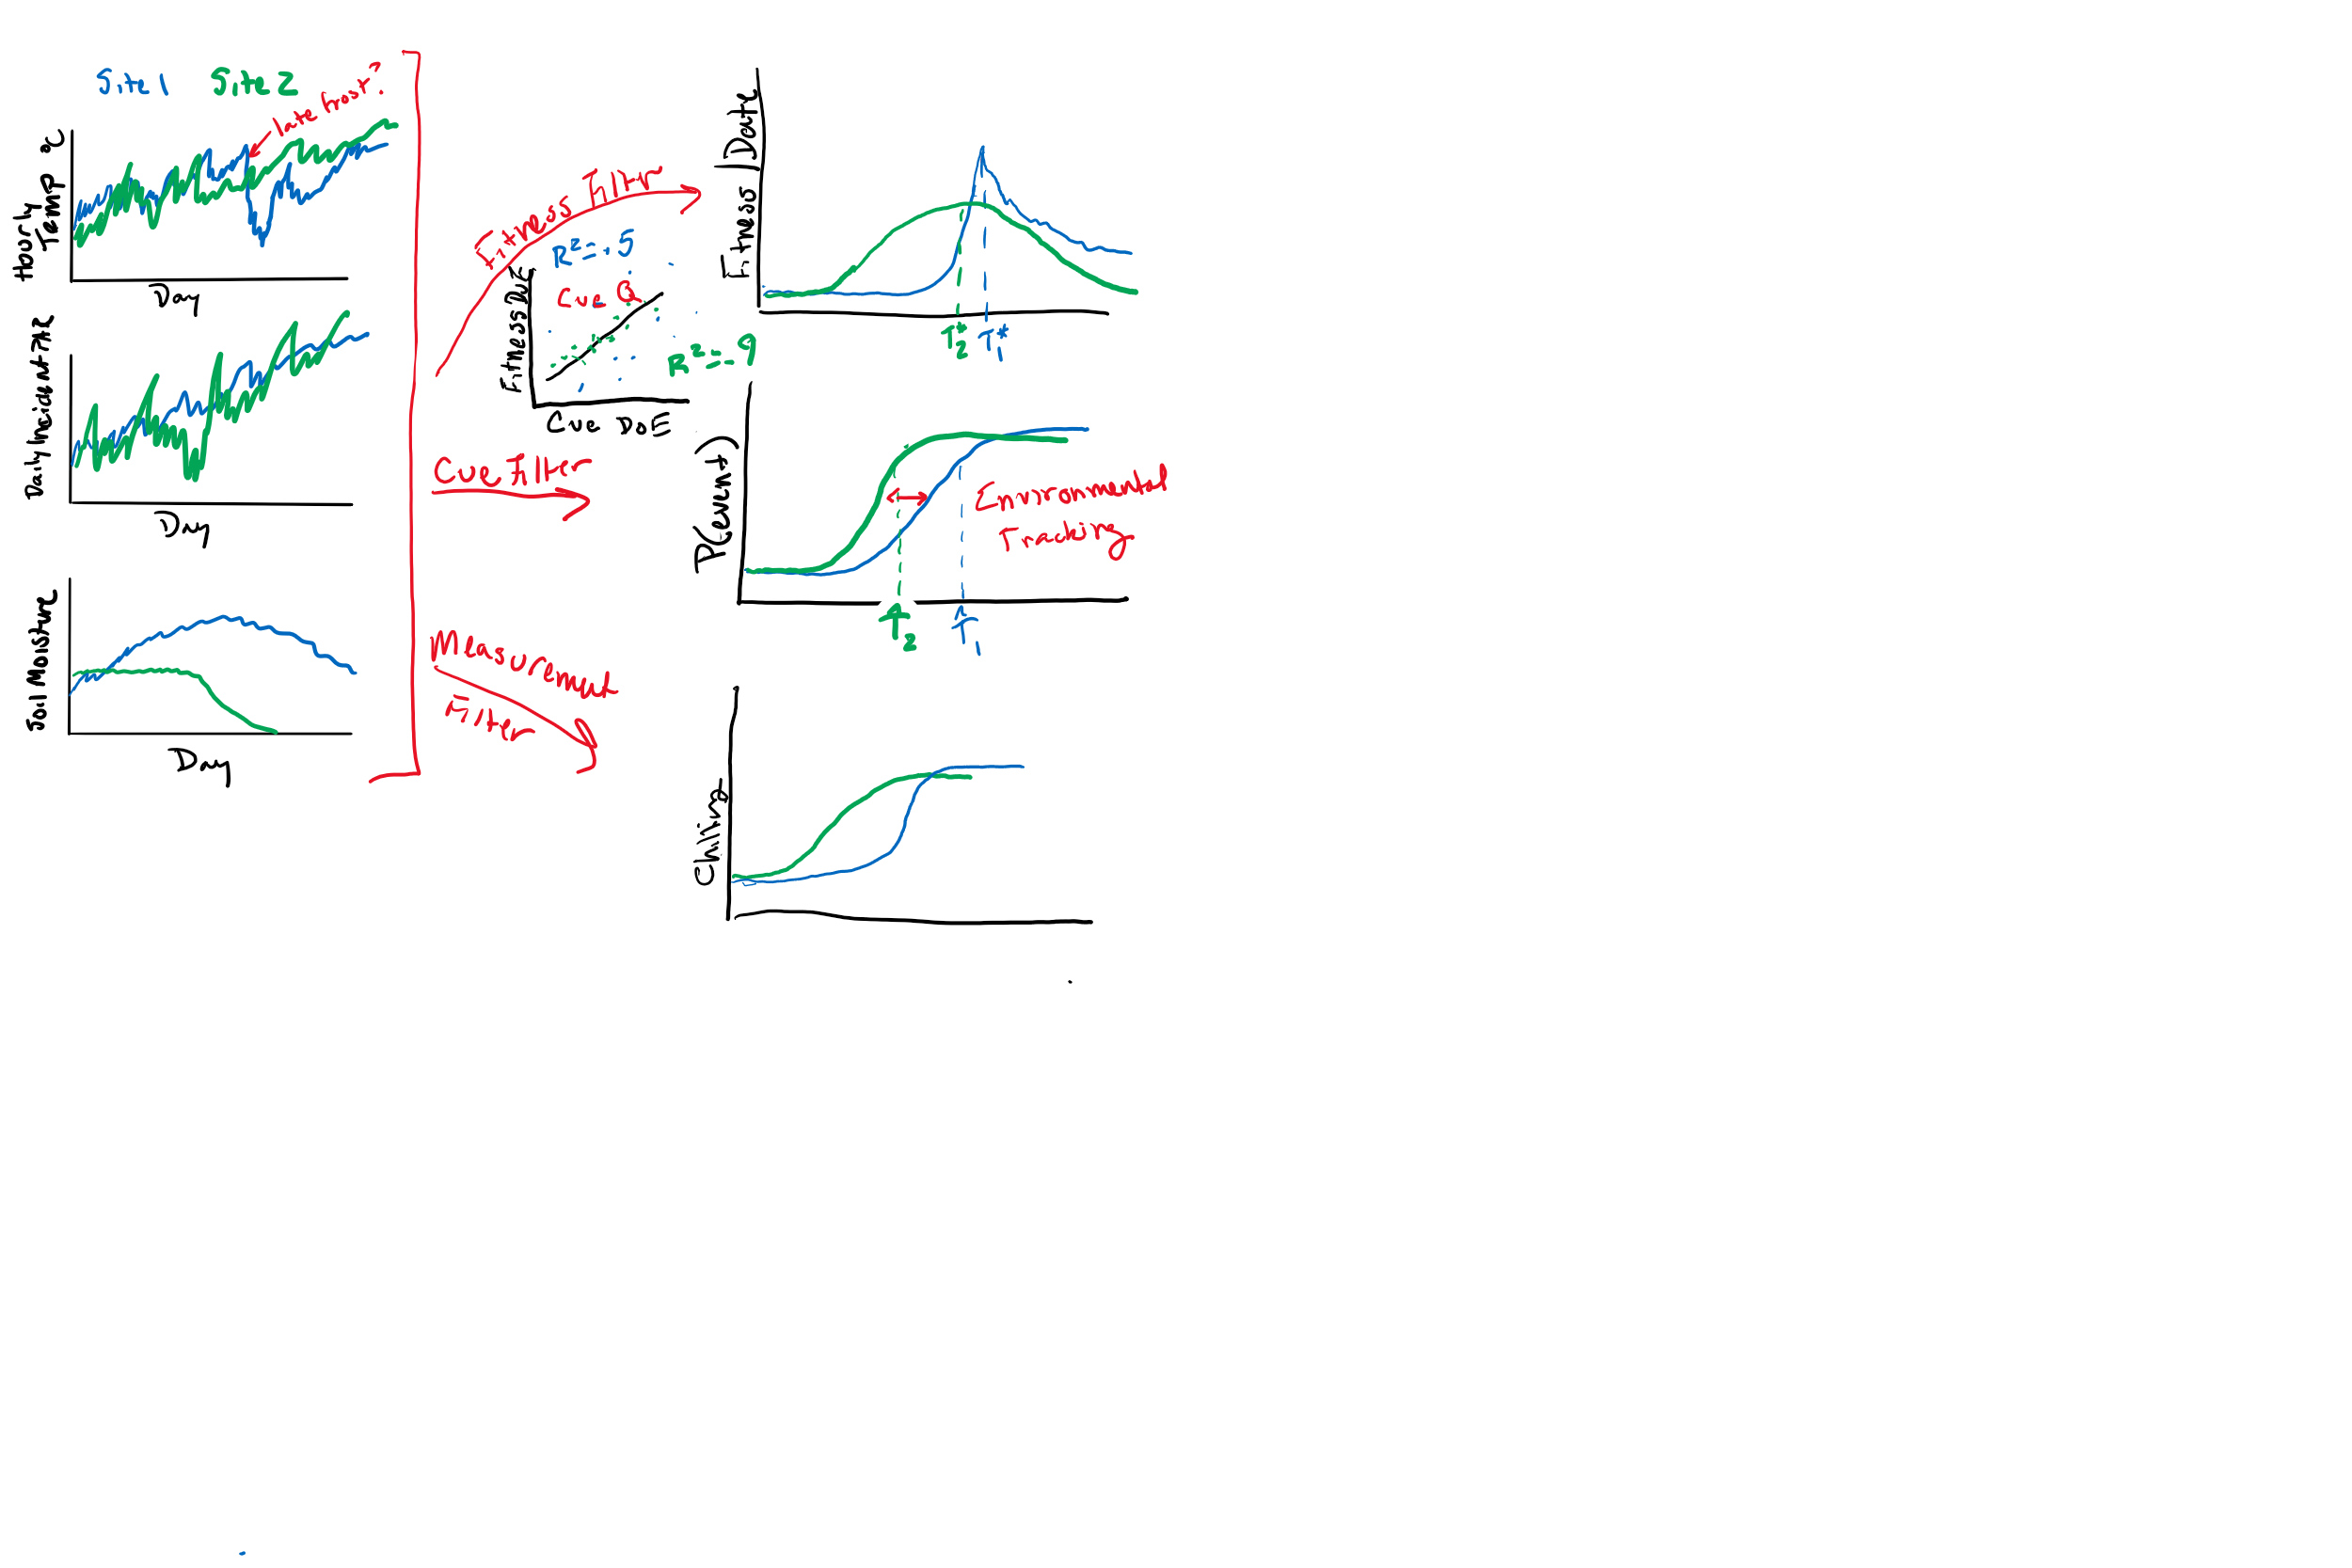 Site 1 Site 2
late frost?
Hourly
Temp °C
Day
Daily Incident PAR
Day
Soil Moisture
Day
Fitness Filter
R²=.5
Cue Q
R²=.9
Fitness DoE
Cue DoE
Cue Filter
Measurement
Filter
Fitness | Date
T₂* T₁*
P(event)
Environmental
Tracking
T₂ T₁
Chilling